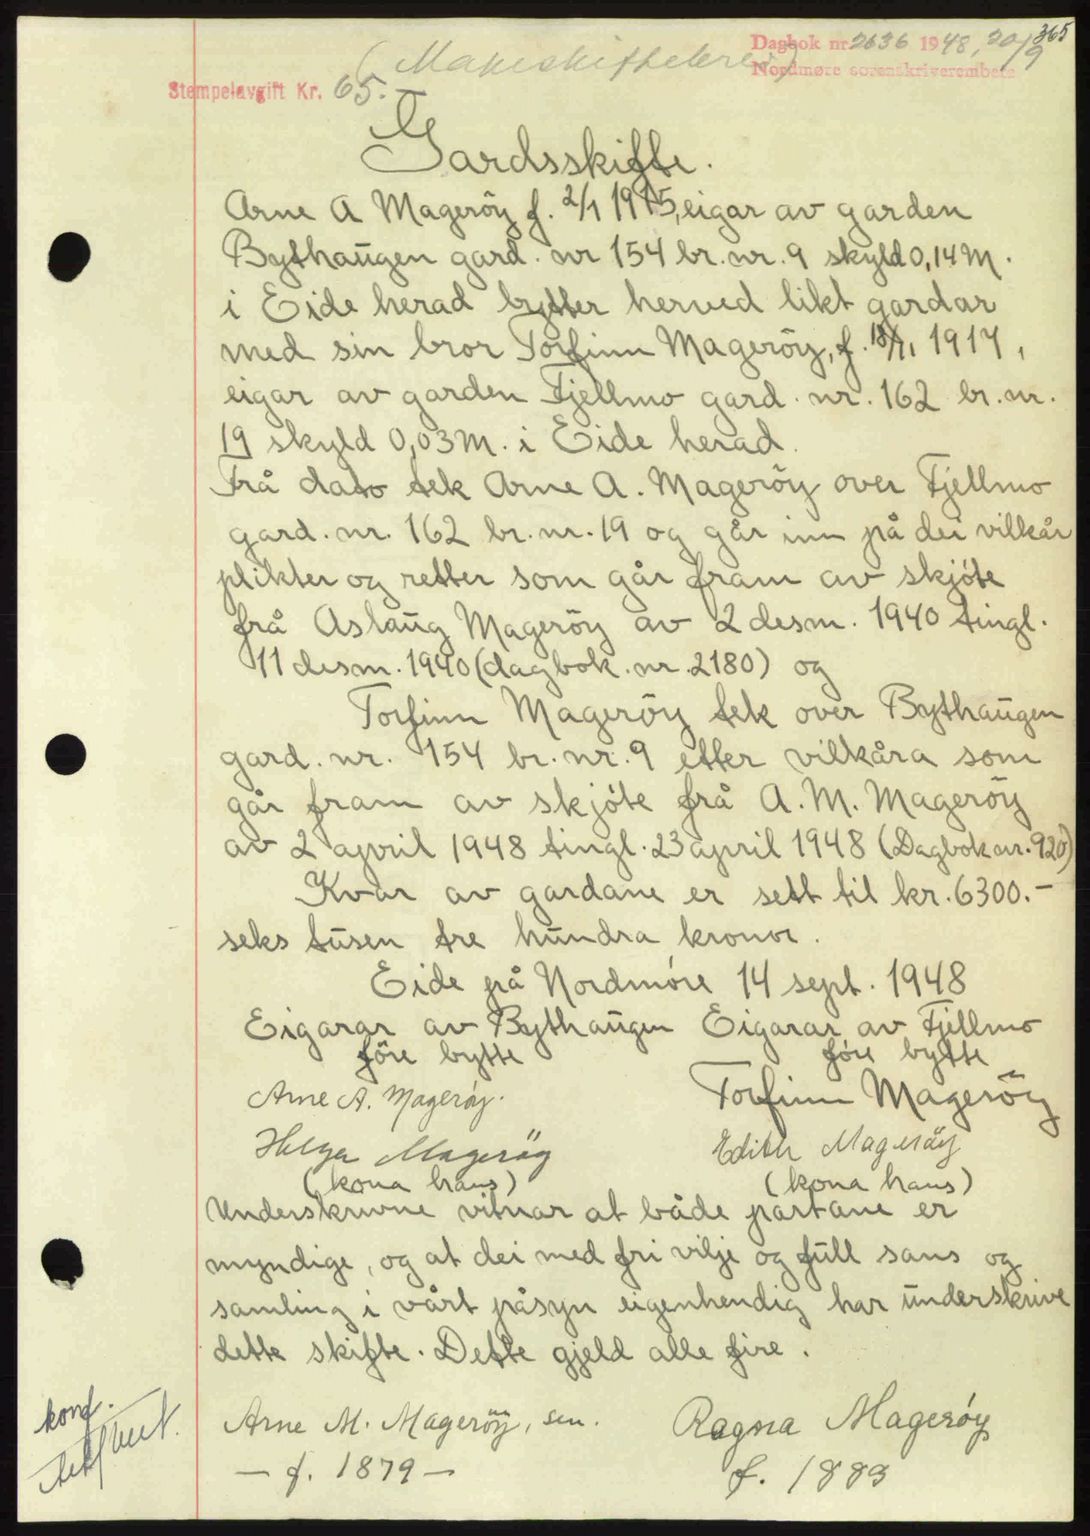 365
Dagbok nr. 2636 1948, 20/9
Nordmøre sorenskriverembete
(Makeskiftebrev)
Stempelavgift Kr. 65.-
Gardsskifte.
Arne A Mageröy f. 2/1 1915, eigar av garden
Bythaugen gard. nr 154 br. nr. 9 skyld 0,14 M.
i Eide herad bytter herved likt gardar
med sin bror Torfinn Mageröy, f. 18/11 1917,
eigar av garden Fjellmo gard. nr. 162 br. nr.
19 skyld 0,03 M. i Eide herad.
Frå dato tek Arne A. Magerøy over Fjellmo
gard. nr. 162 br. nr. 19 og går inn på dei vilkår
plikter og retter som går fram av skjöte
frå Aslaug Mageröy av 2 desm. 1940 tingl.
11 desm. 1940 (dagbok. nr. 2180) og
Torfinn Magerøy tek over Bythaugen
gard. nr. 154 br. nr. 9 etter vilkåra som
går fram av skjöte frå A. M. Magerőy
av 2 april 1948 tingl. 23 april 1948 (Dagbok nr. 920)
Kvar av gardane er sett til kr. 6300.-
seks tusen tre hundra kronor.
Eide på Nordmöre 14 sept. 1948
Eigarar av Bythaugen Eigarar av Fjellmo
före bytte före bytte
Arne A. Magerøy. Torfinn Magerőy
Helga Magerøy Edith Magerøy
(kona hans) (kona hans)
Underskrivne vitnar at både partane er
myndige, og at dei med fri vilje og full sans og
samling i vårt påsyn eigenhendig har underskrive
dette skifte. Dette gjeld alle fire.
konf.
Arne M. Magerøy, sen. Ragna Magerøy
- f. 1879 - f. 1883